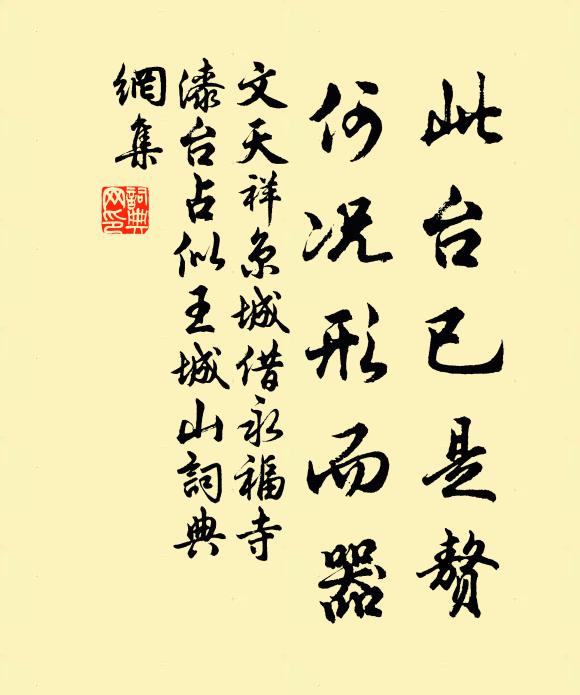 此台已是赘
何况形而器
文天祥京城借永福寺
漆台占似王城山詞典
網集
詞典
网印